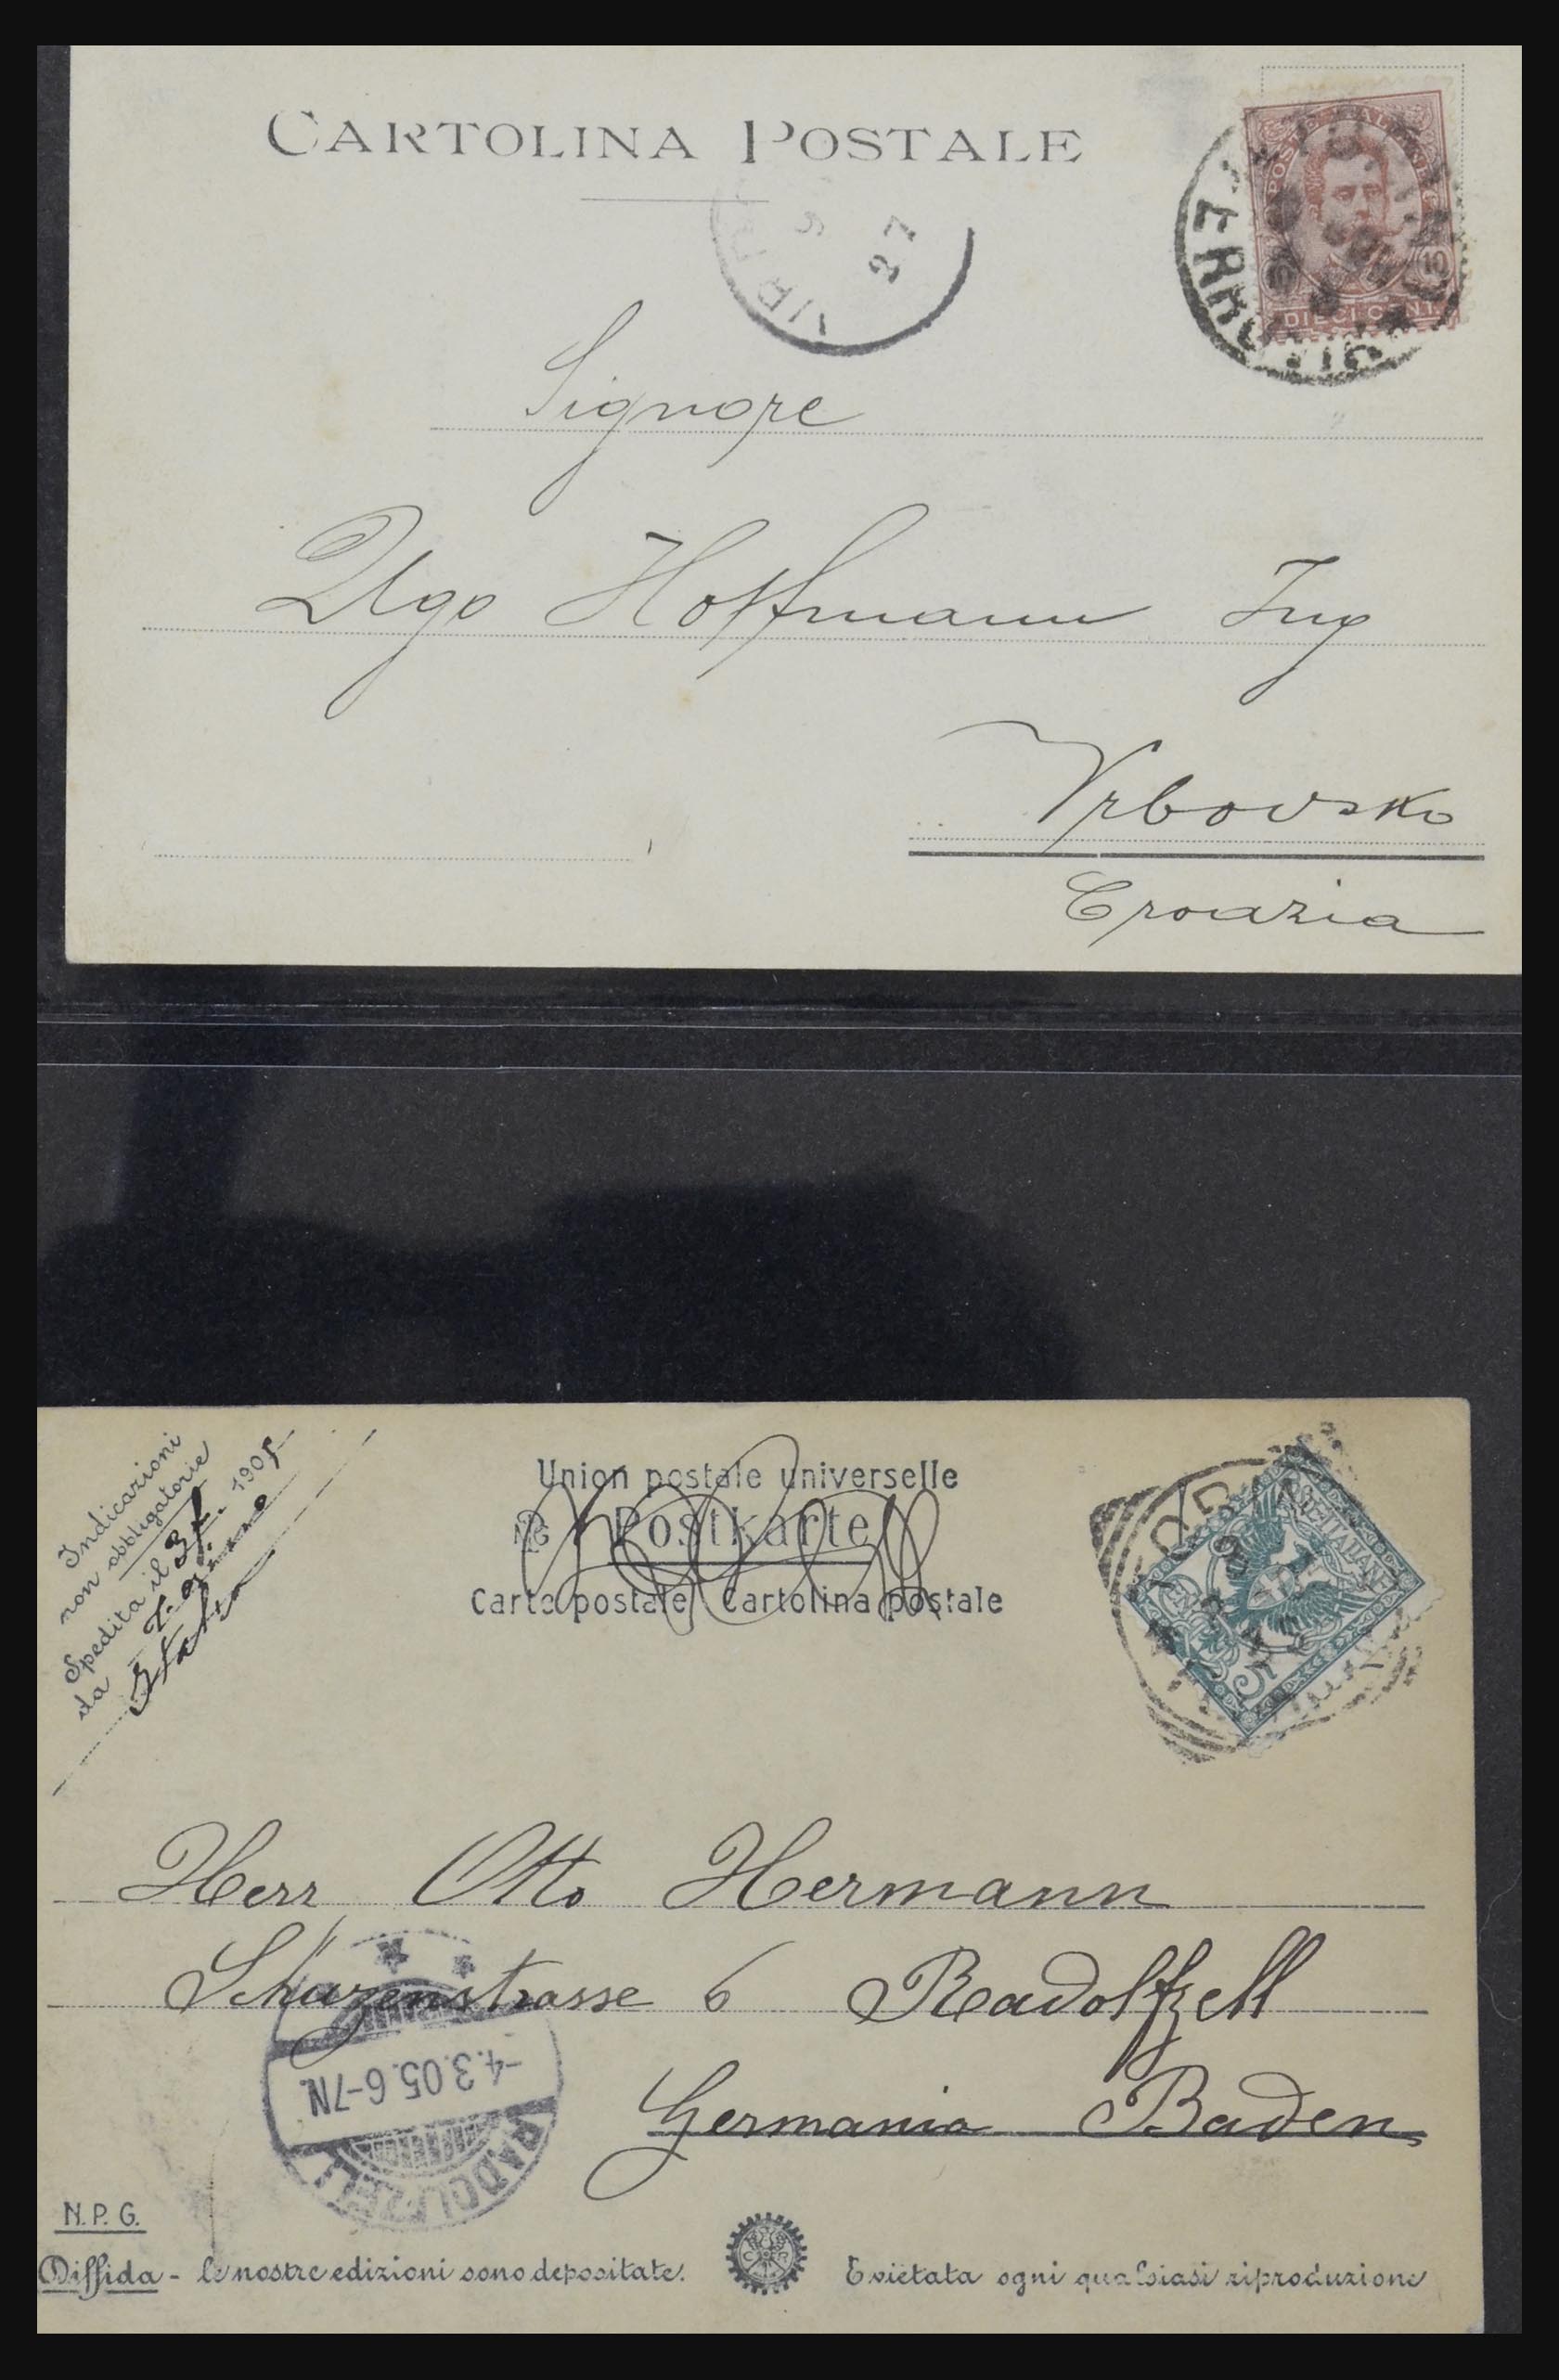 CARTOLINA POSTALE
POSTE ITALIANE
10 10
DIECI CENT.
27
Signore
Ugo Hoffmann Ing
Vrbovsko
Croazia
Indicazioni
non obbligatorie
Spedita il 3/ 1905
da Torino
Italia
Union postale universelle
Postkarte
Carte postale Cartolina postale
POSTE ITALIANE
CENT 5
Herr Otto Hermann
Schüzenstrasse 6 Radolfzell
Germania Baden
-4.3.05.6-7N.
RADOLFZELL
N.P.G.
Diffida - le nostre edizioni sono depositate. E vietata ogni qualsiasi riproduzione